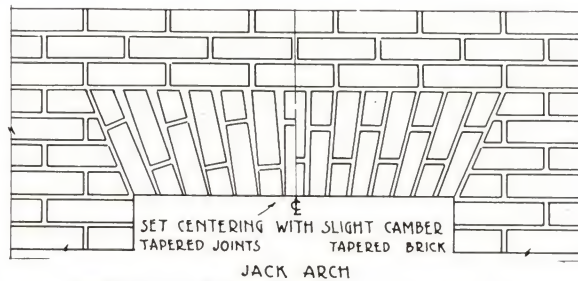 ℄
SET CENTERING WITH SLIGHT CAMBER
TAPERED JOINTS TAPERED BRICK
JACK ARCH